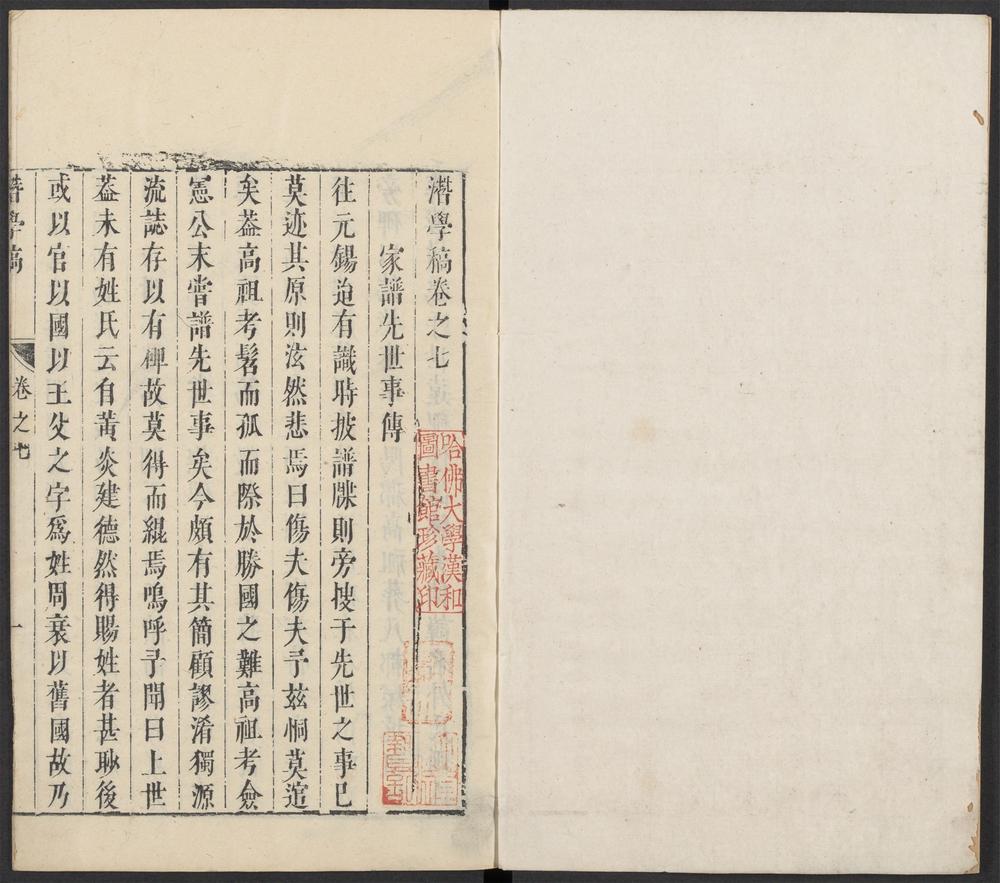 潛學稿卷之七
家譜先世事傳
往元錫迨有識時披譜牒則旁搜于先世之事已
莫迹其原則泫然悲焉曰傷夫傷夫予茲恫莫逭
矣葢高祖考髫而孤而際於勝國之難高祖考僉
憲公末嘗譜先世事矣今頗有其簡顧謬淆獨源
流誌存以有禪故莫得而緄焉嗚呼予聞曰上世
葢未有姓氏云自黃炎建德然得賜姓者甚眇後
或以官以國以王父之字爲姓周衰以舊國故乃
潛學稿
卷之七
一
哈佛大學漢和
圖書館珍藏印